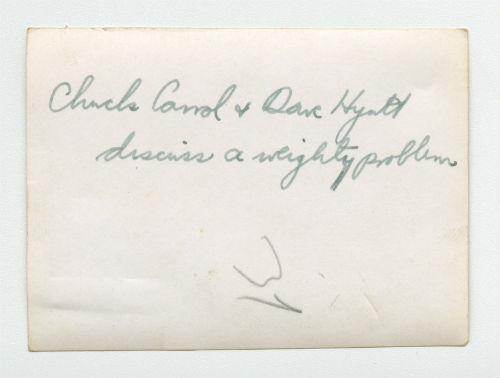 Chuck Carrol & Dave Hyatt
discuss a weighty problem